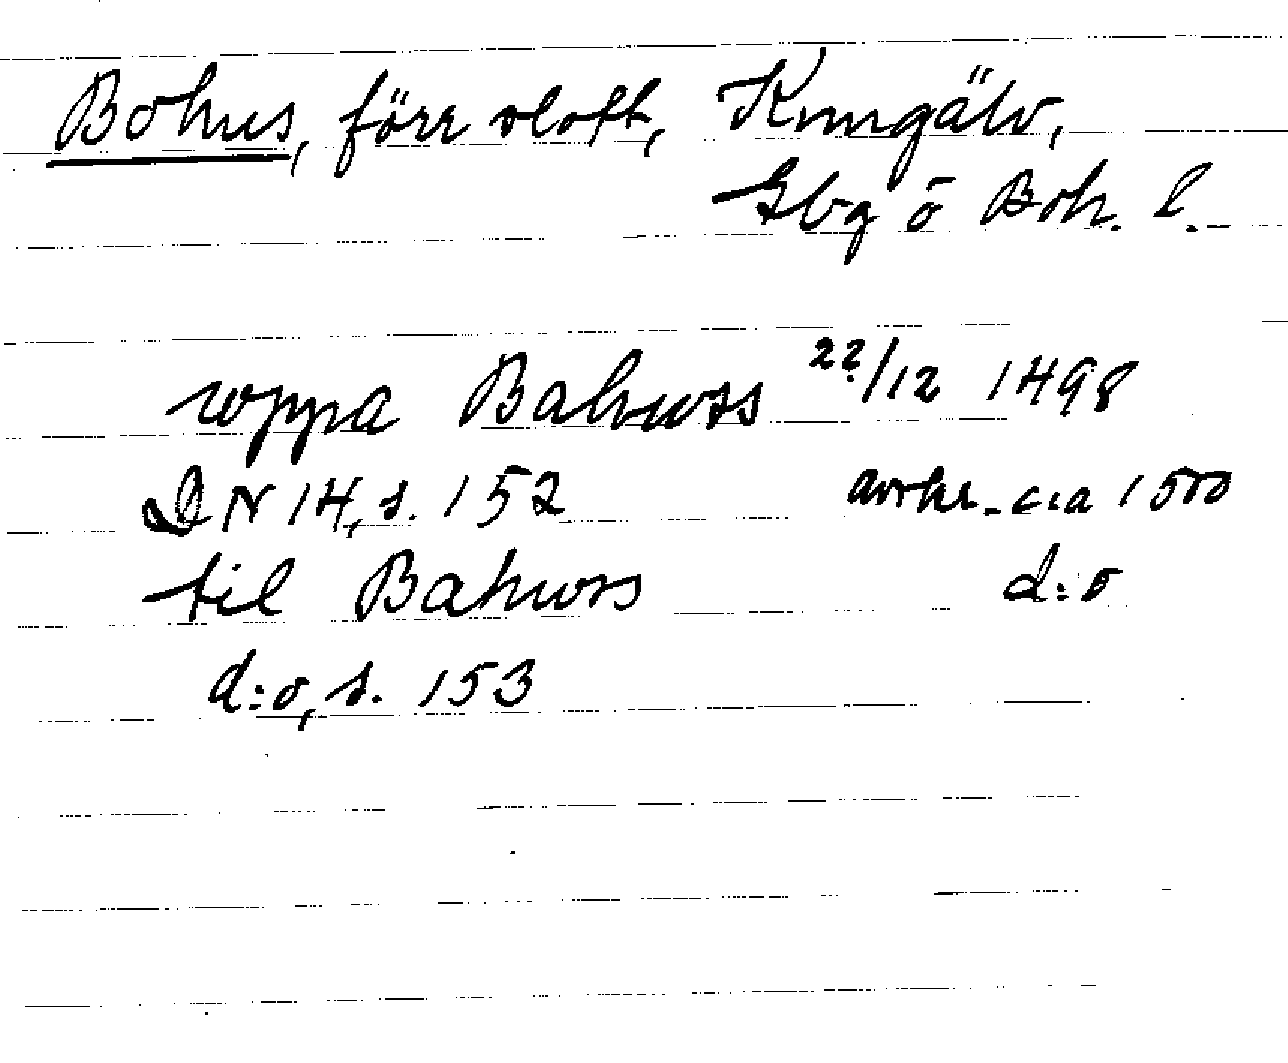 Bohus, förr slott, Kungälv,
Gbg o Boh. l.
uppa Bahwss 22/12 1498
DN 14, s. 152 avskr. c:a 1500
til Bahws d:o
d:o, s. 153